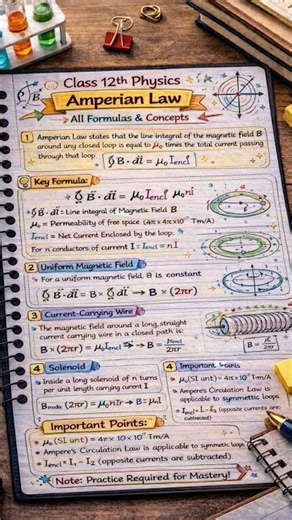 Class 12th Physics
Amperian Law
All Formulas & Concepts
1 Amperian Law states that the line integral of the magnetic field B
around any closed loop is equal to μ₀ times the total current passing
through that loop.
∮ B · dl = μ₀ Iencl
Key Formula:
∮ B · dl = μ₀ Iencl μ₀nI
∮ B · dl = Line integral of Magnetic Field B
μ₀ = Permeability of free space (4π x 4π x10⁻⁷ Tm/A)
Iencl = Net Current Enclosed by the loop.
For n conductors of current I = Iencl = n I
2 Uniform Magnetic Field
For a uniform magnetic field, B is constant
∮ B · dl = B × ∮ dl → B × (2πr)
3 Current-Carrying Wire
The magnetic field around a long, straight
current carrying wire in a closed path is:
B × (2πr) = μ₀Iencl → B =
2πr
4 Solenoid
Inside a long solenoid of n turns
per unit length carryng current I
(2πr) = μ₀nIr → B = μ₀I
4 Important Points
μ₀ (SI unt) = 4π × 10⁻⁷ T·m/A
Ampere's Circulation Law is
applicable to symmetric loops
Iencl = I₁ - I₂ (opposite currents are
subtracted)
Important Points:
μ₀ (SI unt) = 4π × 10 × 10⁻⁷ T·m/A
Ampere's Circulation Law is applicable to symmetric loops
Iencl = I₁ - I₂ (opposite currents are subtracted)
Note: Practice Required for Mastery!